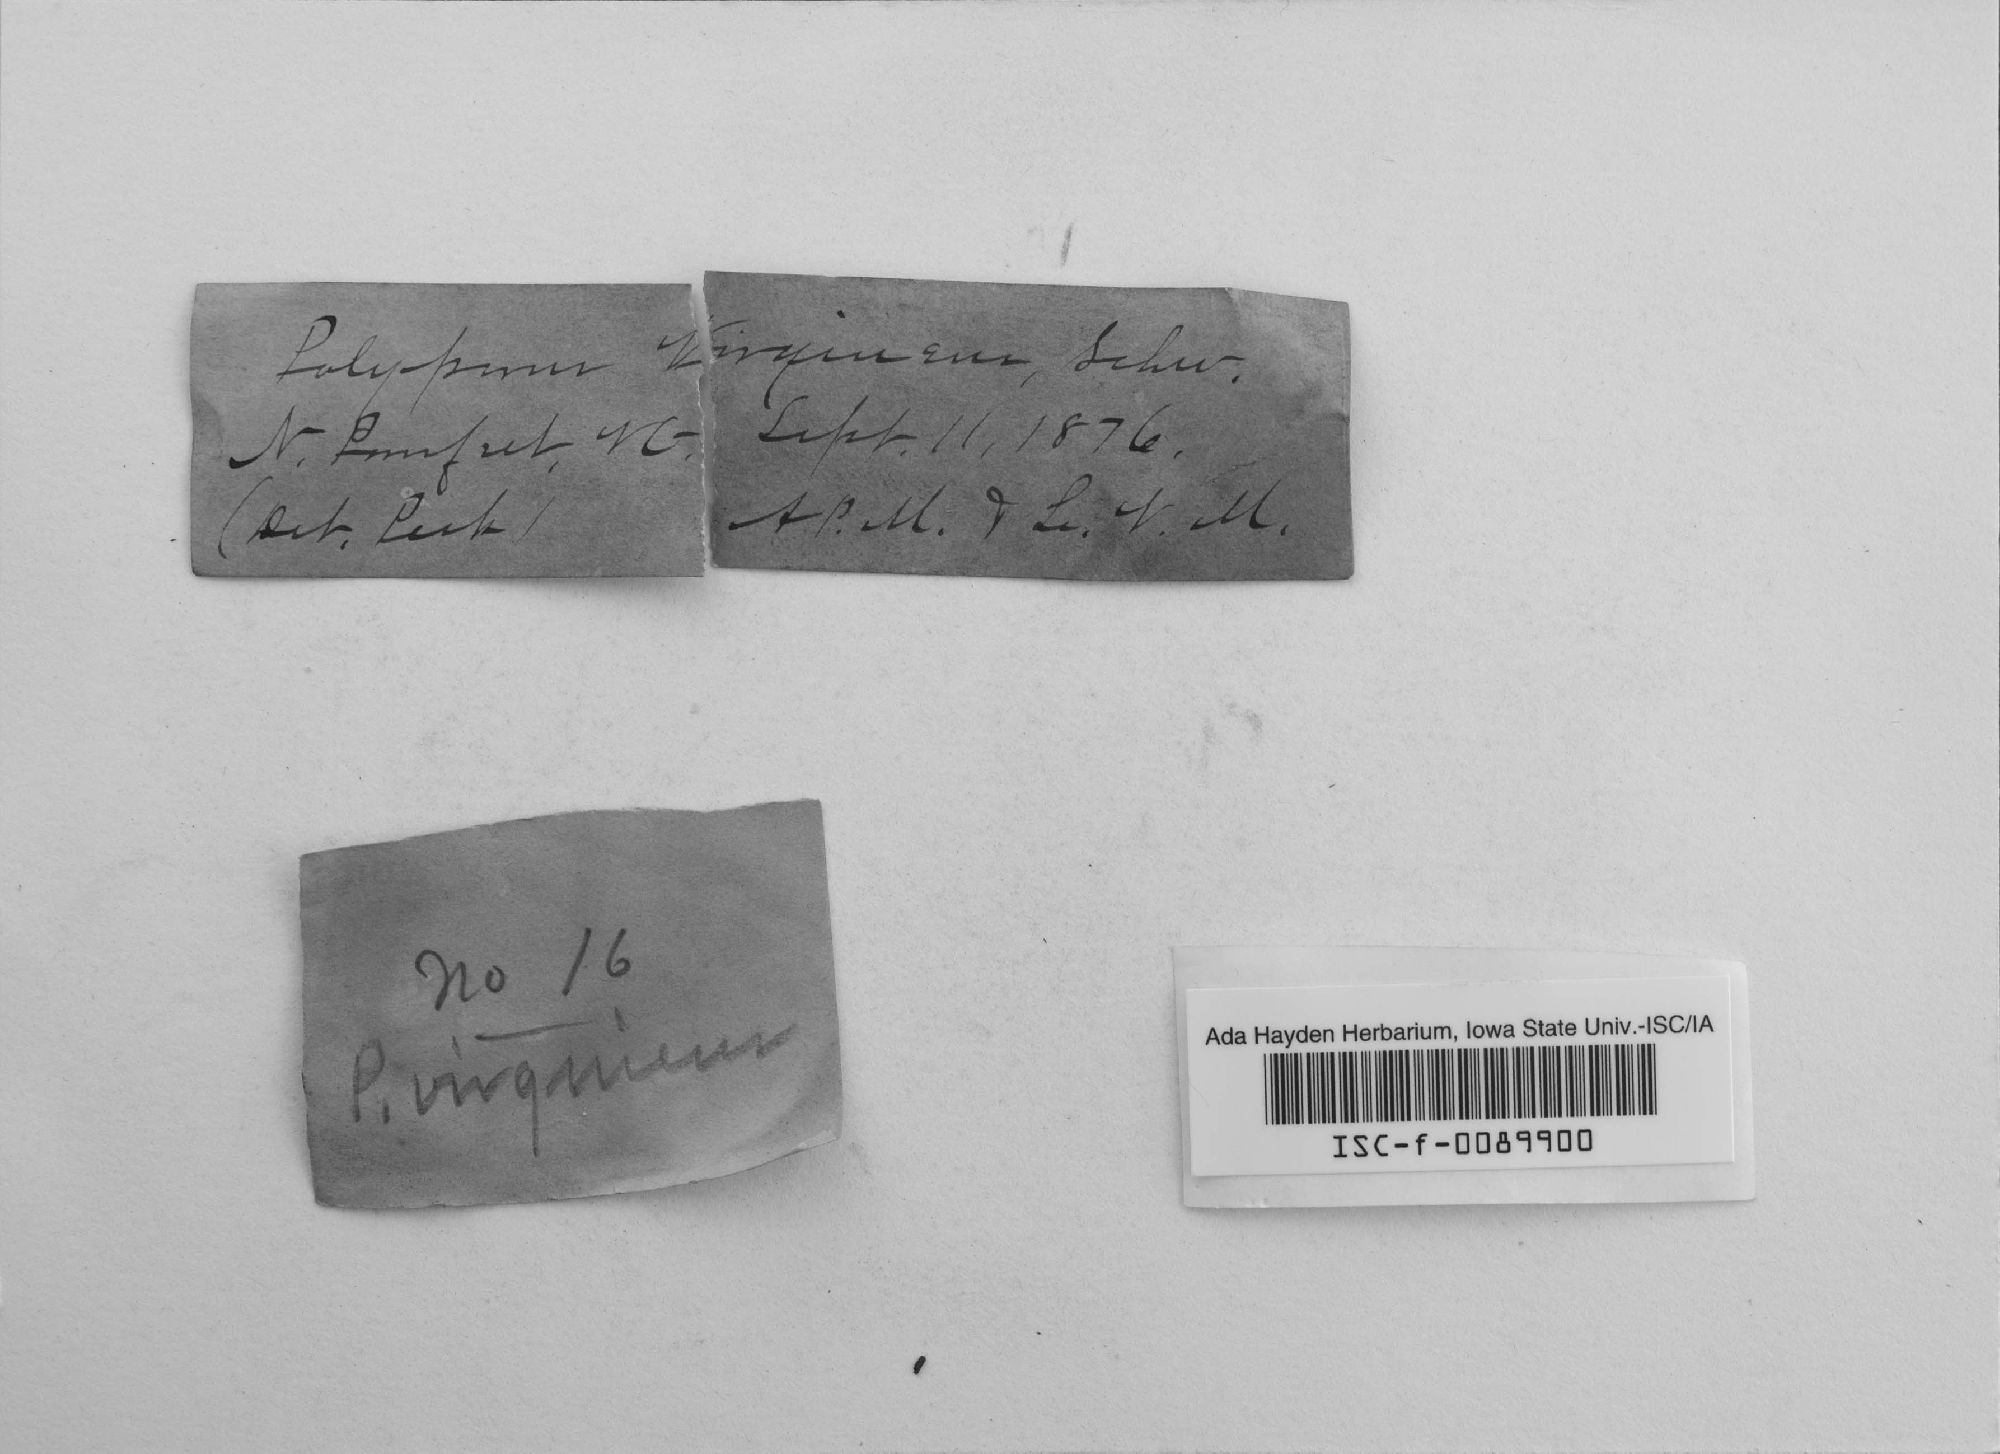 Polyporus Virgineus, Schw.
N. Pomfret, Vt. Sept. 11, 1876.
(Det. Peck) A P. M. & L. V. M.
No 16
P. virgineus
Ada Hayden Herbarium, Iowa State Univ.-ISC/IA
ISC-f-0089900